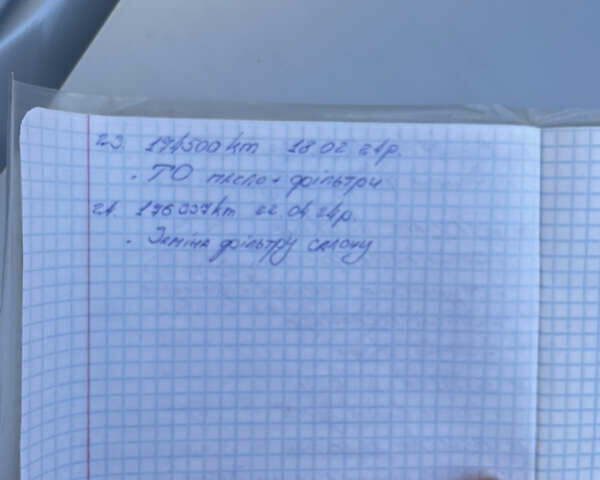 23. 174500 km 18.02 24р.
. ТО масло + фільтри
24. 176337 km 22.04 24р.
. Заміна фільтру салону